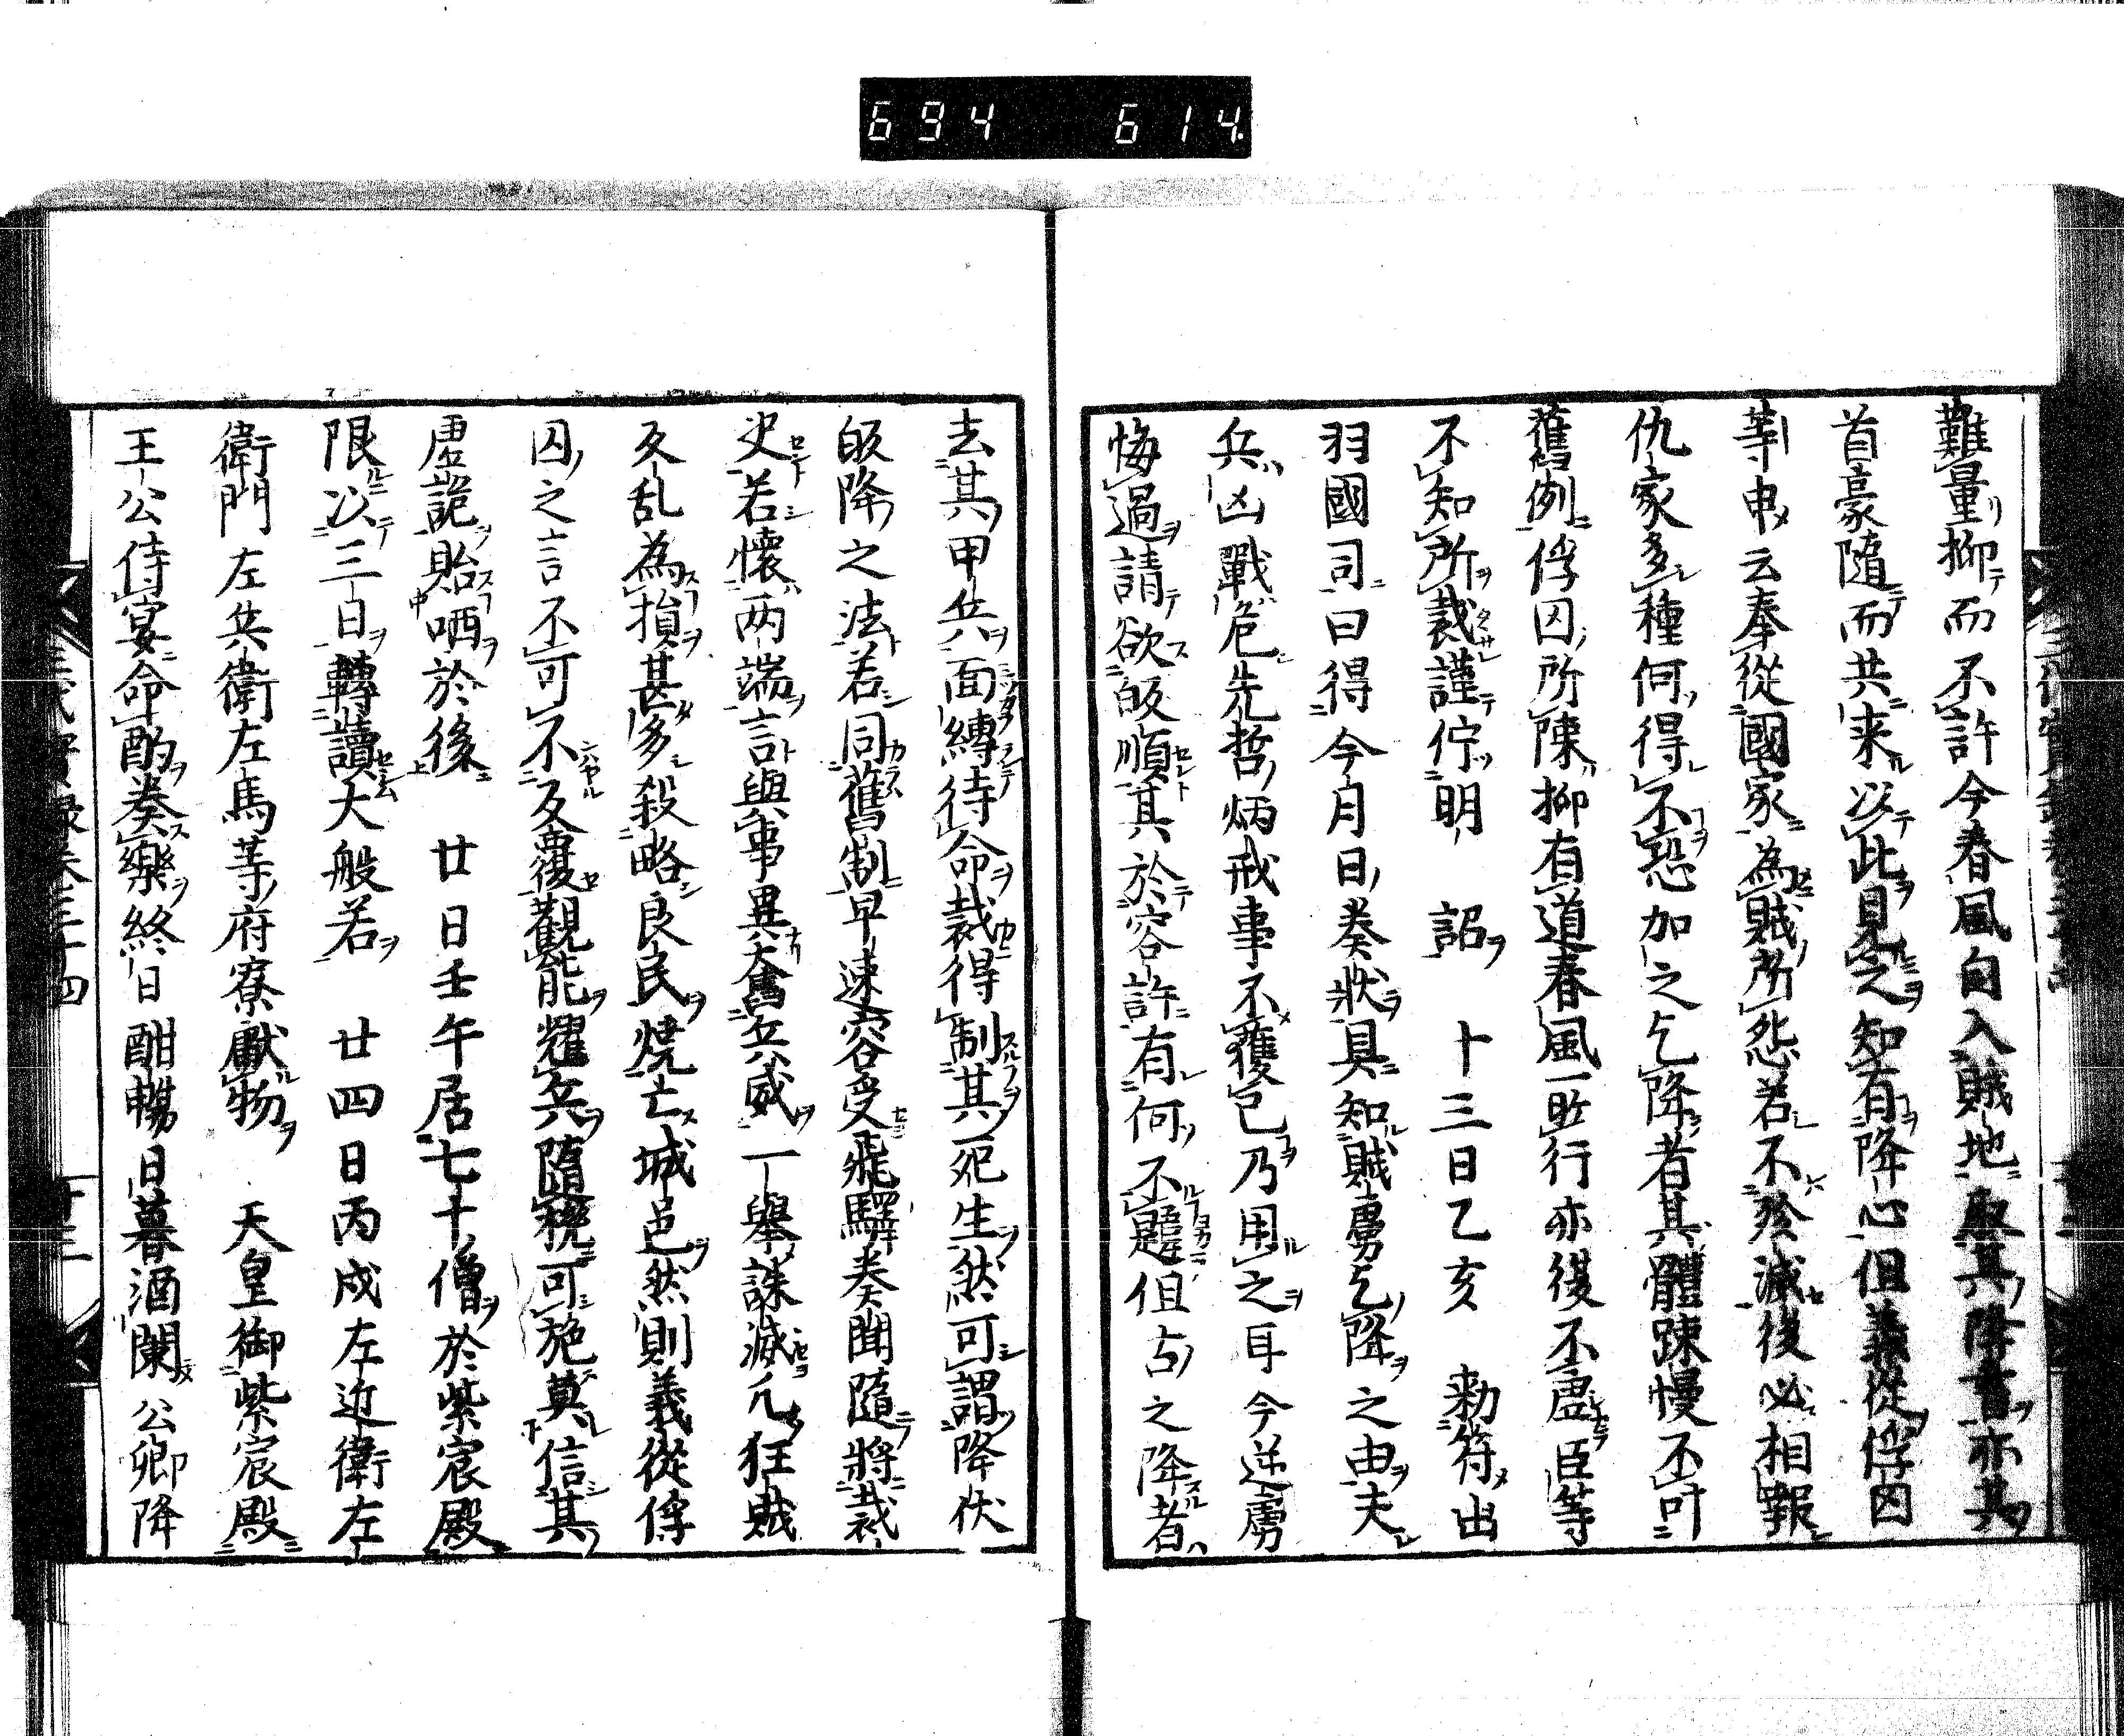 694 614
難量抑而不許今春風自入賊地取其降書亦其
首豪隨而共来以此見之知有降心但義從俘囚
等申云奉從國家為賊所怨若不殄滅後必相報
仇家多種何得不恐加之乞降者其體踈慢不叶
舊例俘囚所陳抑有道春風所行亦復不虛臣等
不知所裁謹佇明　詔　十三日乙亥　勅符出
羽國司曰得今月日奏狀具知賊虜乞降之由夫
兵凶戰危先哲炳戒事不獲已乃用之耳今逆虜
悔過請欲皈順其於容許有何不韙但古之降者
去其甲兵面縛待命裁得制其死生然可謂降伏
皈降之法若同舊制早速容受飛驛奏聞隨將裁
史若懷両端言與事異奮兵威一舉誅滅凢狂賊
反乱為損甚多殺略良民燒亡城邑然則義從俘
囚之言不可不反覆觀能耀兵隨機可施莫信其
虛詭貽哂於後　廿日壬午居七十僧於紫宸殿
限以三日轉讀大般若　廿四日丙戌左近衛左
衛門左兵衛左馬等府寮獻物　天皇御紫宸殿
王公侍宴命酌奏樂終日酣暢日暮酒闌公卿降